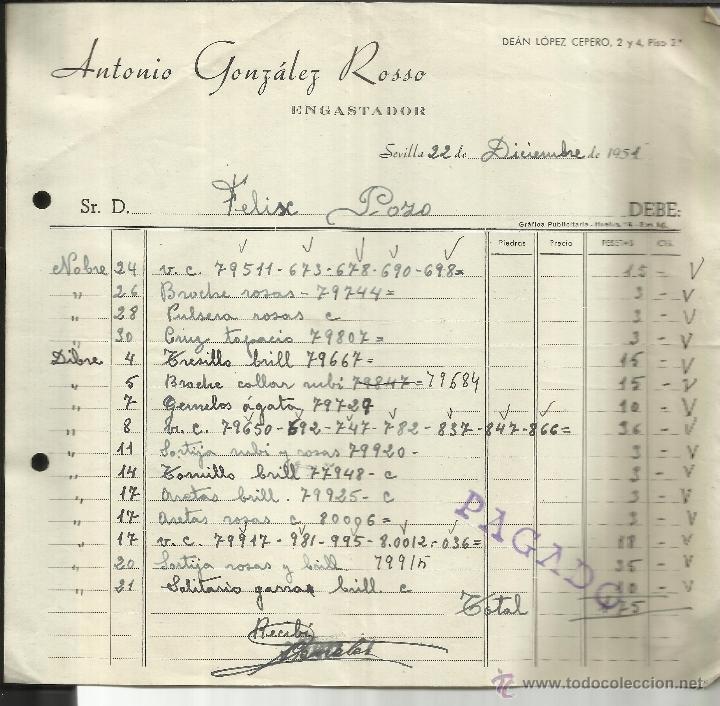 DEÁN LÓPEZ CEPERO, 2 y 4, Piso 2.º
Antonio González Rosso
ENGASTADOR
Sevilla 22 de Diciembre de 1951
Sr. D. Felix Pozo DEBE:
Gráfica Publicitaria
Piedras Precio PESETAS CTS.
Nobre 24 v. c. 79511-673-678-690-698= 15 -
" 26 Broche rosas - 79744= 3 -
" 28 Pulsera rosas c 3 -
" 30 Cruz topacio 79807= 3 -
Dibre 4 Tresillo brill 79667= 15 -
" 5 Broche collar rubi 79847=79684 15 -
" 7 Gemelos ágata 79729 10 -
" 8 v. c. 79650-692-747-782-837-847-866= 36 -
" 11 Sortija rubi y rosas 79920- 3 -
" 14 Tornillo brill 77948-c 3 -
" 17 Aretas brill. 79925-c 3 -
" 17 Aretas rosas c 80006= 3 -
" 17 v. c. 79917-981-995-8.0012-036= 18 -
" 20 Sortija rosas y brill 79915 35 -
" 21 Solitario garras brill. c 10 -
Total 175
PAGADO
Recibí
www.todocoleccion.net